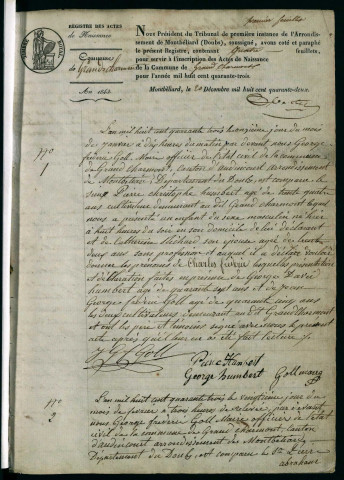 premier feuillet
REGISTRE DES ACTES
de Naissance
Commune
de Grand Charmont
An 1843.
Nous Président du Tribunal de première instance de l'Arrondis-
sement de Montbéliard (Doubs), consigné, avons coté et paraphé
le présent registre, contenant quatre feuillets,
pour servir à l'inscription des Actes de Naissance
de la Commune de Grand Charmont
pour l'année mil huit cent quarante-trois.
Montbéliard, le 20 Décembre mil huit cent quarante-deux.
N° 1
L'an mil huit cent quarante trois le onzième jour du mois
de janvier à dix heures du matin par devant nous George
fréderic Goll Maire officier de l'état civil de la commune
de Grand Charmont, canton d'audincourt arrondissement
de Montbéliard, Département du Doubs, est comparu le
sieur Pierre christophe humbert agé de trente quatre
ans cultivateur demeurant au dit Grand charmont lequel
nous a présenté un enfant du sexe masculin né hier
à huit heures du soir en son domicile de lui déclarant
et de Catherine son épouse agée de trente
deux ans sans profession et auquel il a déclaré vouloir
donner les prénoms de Charles lesquelles présentation
et déclaration faites en présence de George David
humbert agé de quarante sept ans et de
George féderic Goll agé de quarante cinq ans
les deux cultivateurs demeurant au dit Grand charmont
et ont les père et témoins signé avec nous le présent
acte après qu'il leur en a été fait lecture
Goll
Pierre Humbert
George humbert Goll maire
N° 2
L'an mil huit cent quarante trois le vingtième jour du
mois de février à trois heures de relevée, par devant
nous George fréderic Goll Maire officier de l'état
civil de la commune de Grand charmont, canton
d'audincourt arrondissement de Montbéliard,
Département du Doubs, est comparu le Sr Pierre
abraham